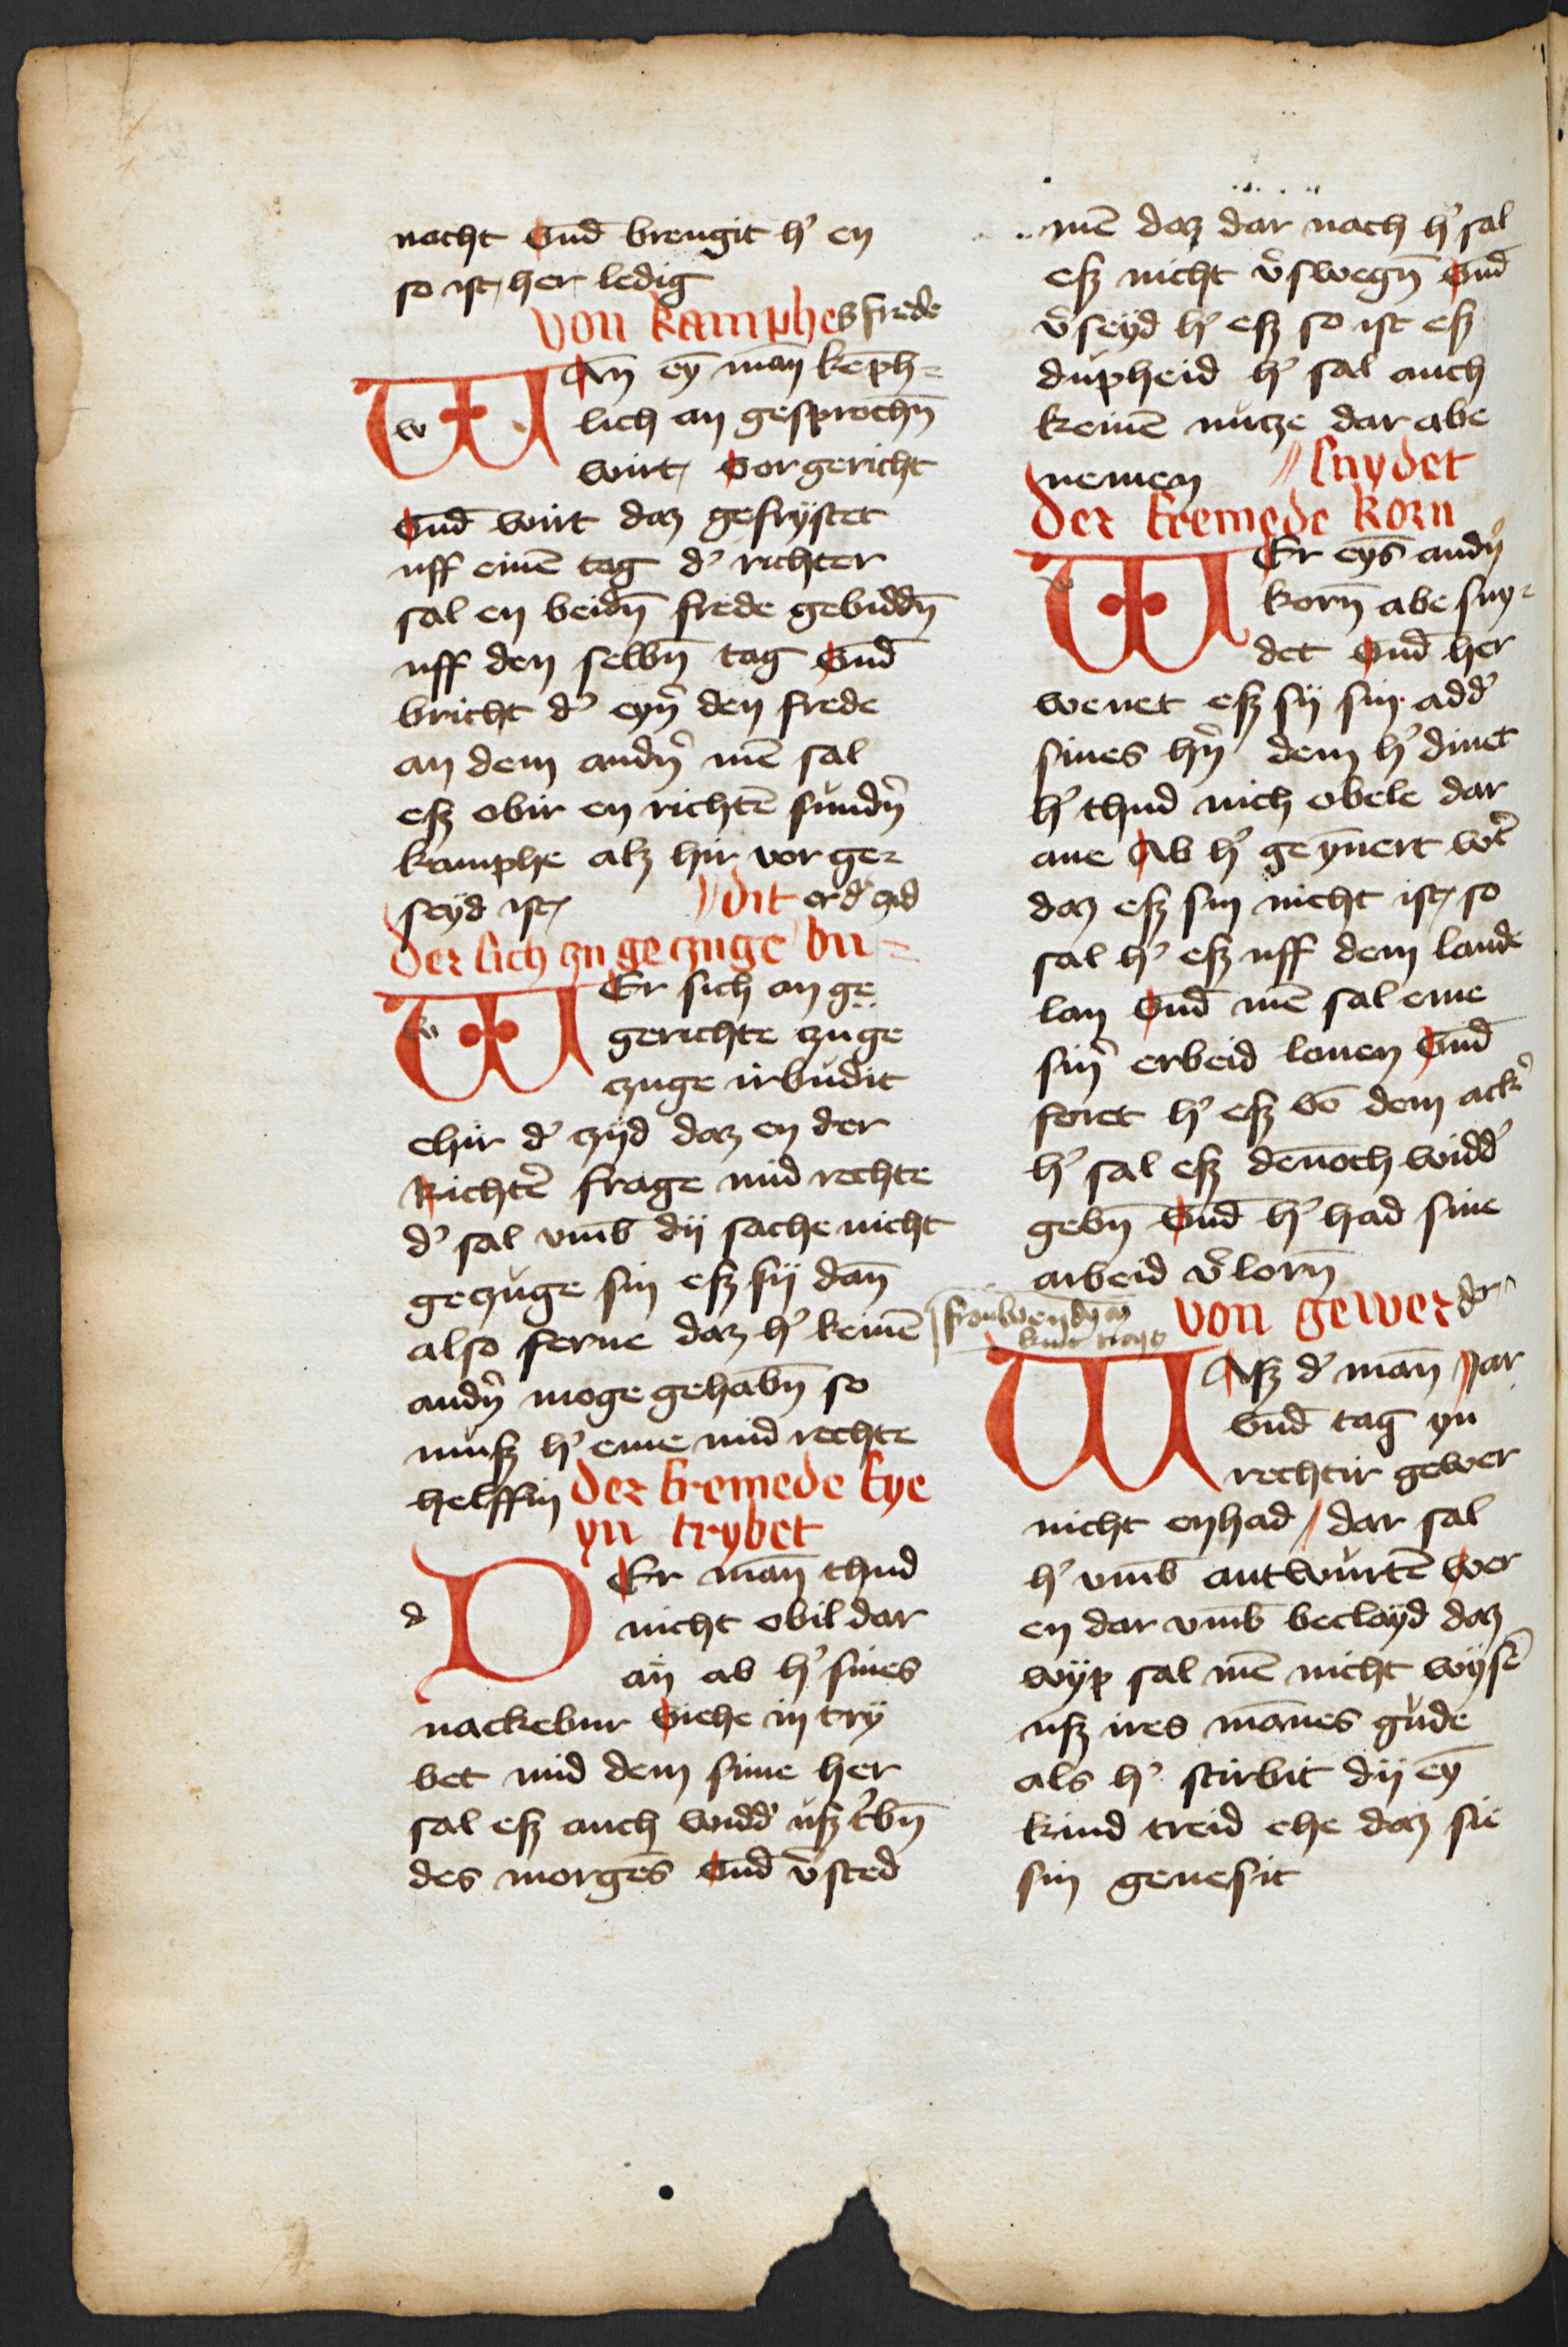 nacht vnd̄ brengit h' en
so ist her ledig
von kamphes frede
WAn̄ eȳ man̄ kēph=
lich an gesprochn̄
wirt vor gericht
vnd̄ wirt daz gefrystet
uff einē tag d' richter
sal en beidn̄ frede gebiddn̄
uff den selbn̄ tag vnd̄
bricht d' eyn' den frede
an dem andn' mē sal
esz obir en richtē sundn'
kamphe alz hir vor ge=
seyd ist
der sich zu geczuge bu=
//dit er d' czid
WEr sich an ge
gerichte czuge
czuge irbudit
ehir d' zyid daz en der
Richter' frage mid rechte
d' sal vmb dij sache nicht
geczuge sin esz sij dan̄
also ferne daz h' keinē
andn' moge gehabn̄ so
musz h' eme mid rechte
helffin
der fremede fye
yn trybet
DEr man̄ thud
nicht obil dar
an ab h' sines
nackebur viehe in try
bet mid dem sime her
sal esz auch widd' usz t'bn̄
des morgēs vnd̄ v'sted
mē daz dar nach h' sal
esz nicht v'swegn̄ vnd̄
v'seyd h' esz so ist esz
dupheid h' sal auch
keinē nutze dar abe
nemen
der fremede korn
//snydet
WEr eyēs andn'
korn̄ abe sny=
det vnd̄ her
wenet esz sij sin add'
sines hn' dem h' dinet
h' thud nich obele dar
ane Ab h' geȳnert w't
daz esz sin nicht ist so
sal h' esz uff dem lande
lan vnd̄ mē sal eme
sin' erbeid lonen vnd̄
foret h' esz vō dem ack'
h' sal esz dēnoch widd'
gebn̄ vnd̄ h' had sine
arbeid v'lorn̄
von gewer der
frauwen dy eȳ
kint treyt
WAsz d' man̄ Jar
vnd̄ tag yn
rechtir gewer
nicht enhad / dar sal
h' vmb antwurtē wer
en dar vmb beclayd daz
wyp sal mē nicht wysē
usz ires mānes gude
als h' stirbit dij eȳ
kind treid ehe daz sie
sin genesit